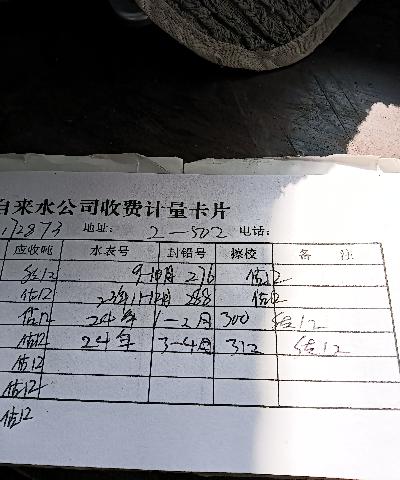 自来水公司收费计量卡片
12873 地址: 2-502 电话:
应收吨 水表号 封铅号 擦校 备 注
估12 9-10月 276 估12
估12 23年11-12月 288 估12
估12 24年 1-2月 300 估12
估12 24年 3-4月 312 估12
估12
估12
估12